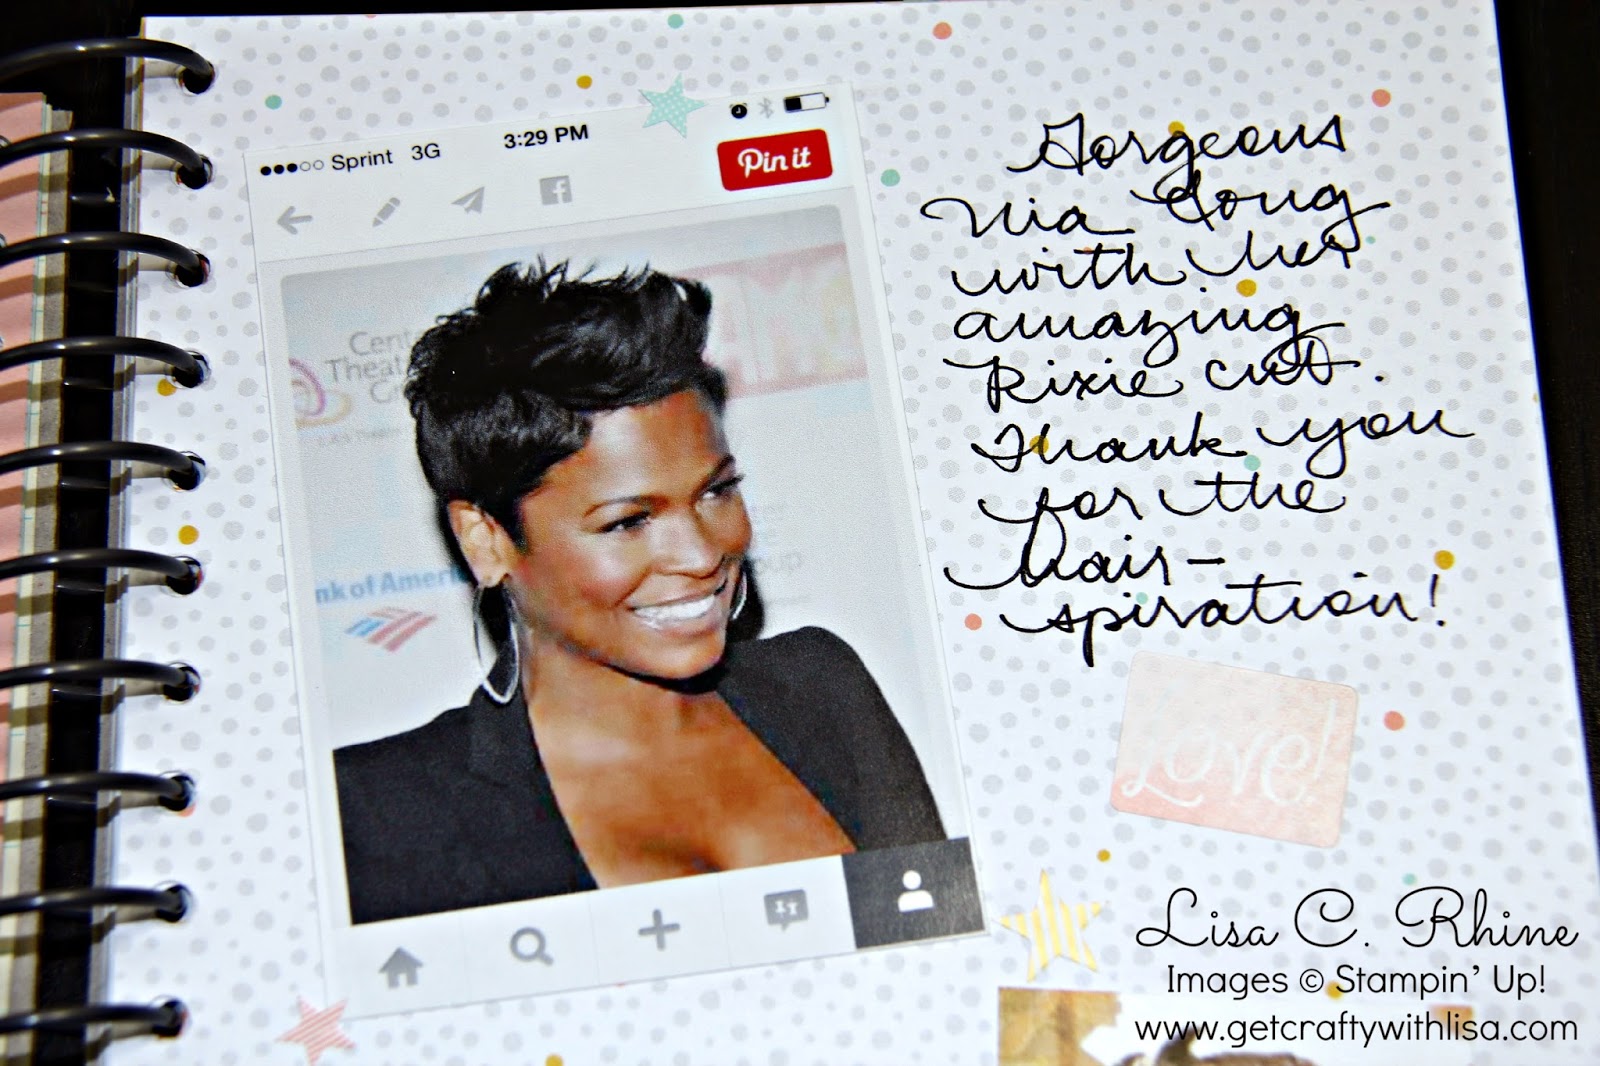 Sprint 3G 3:29 PM
Pin it
Gorgeous
Nia Long
with her
amazing
Pixie cut.
Thank you
for the
hair-
spiration!
Cent
Theat
G
nk of Americ
oup
Love!
Lisa C. Rhine
Images © Stampin' Up!
www.getcraftywithlisa.com